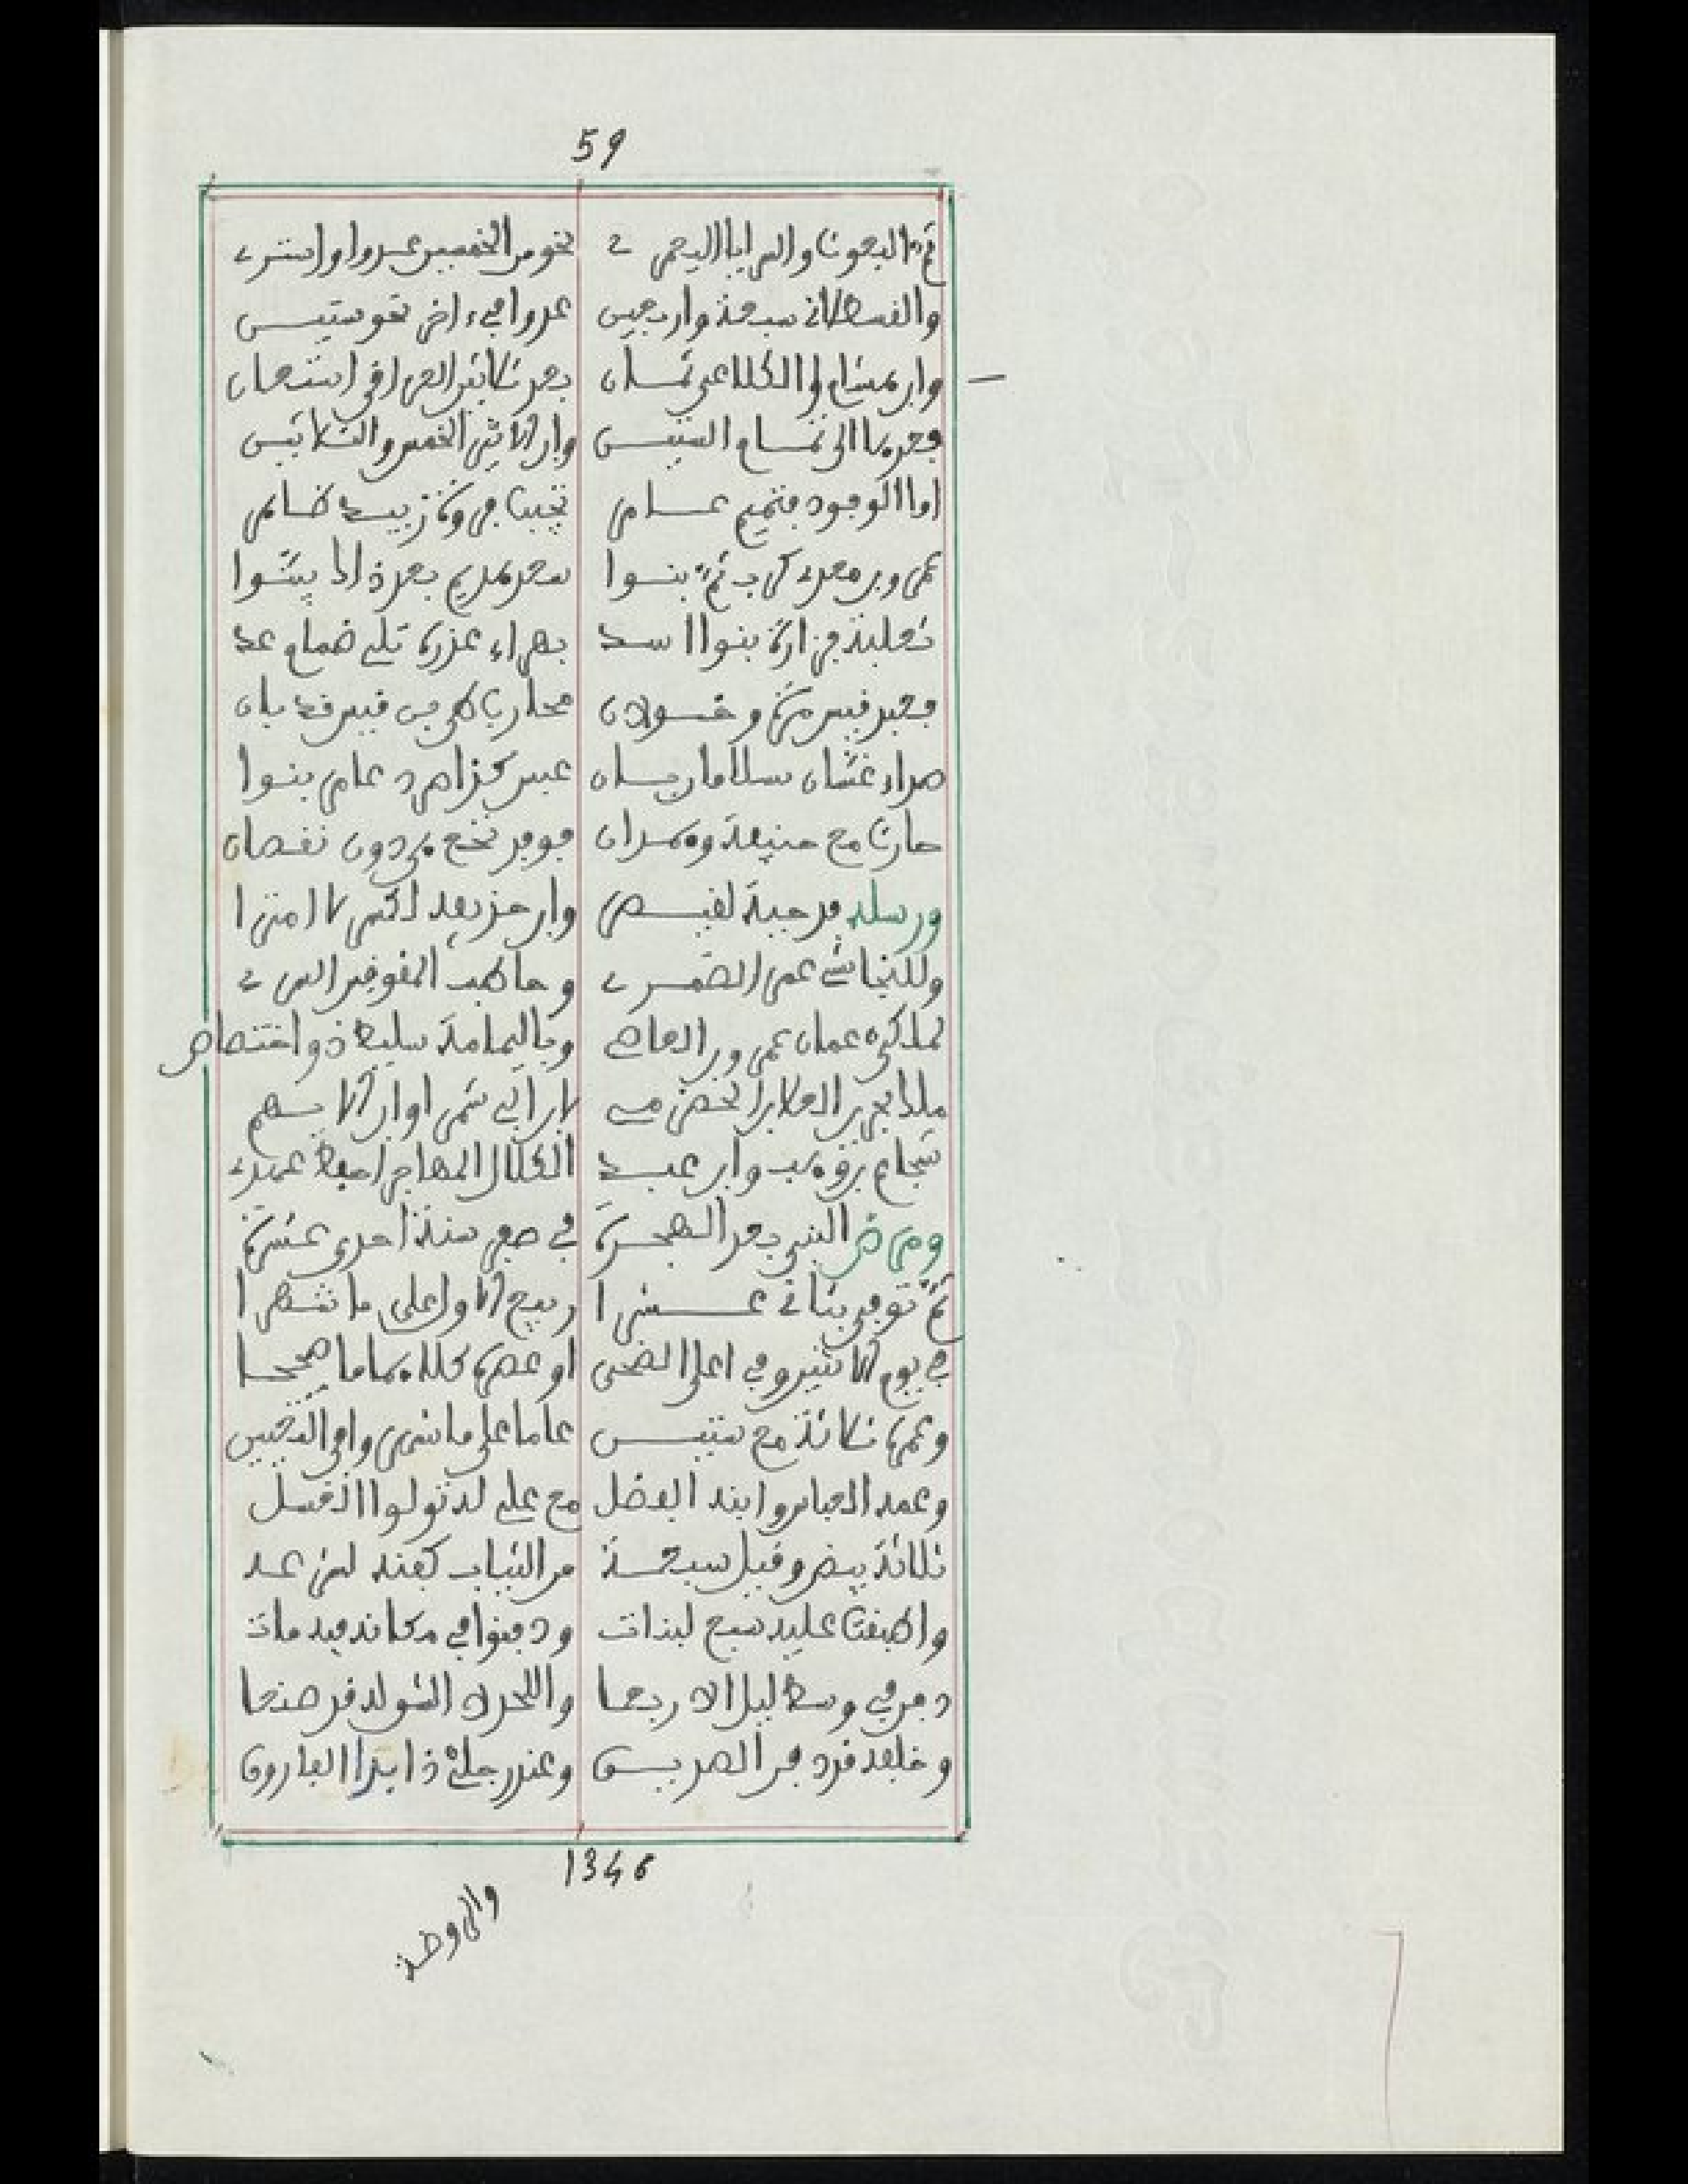 59
ثم البعوث والسرايا اليعمري نحو من الخمسين عدوا وانتر
والقسطلاني سبعة واربعين عدوا في اخر نحو ستين
وابن هشام والكلاعي ثمان بعد ثلاثين العراقي استعان
بعدها الى تمام الستين وابن الاثير الخمس والثلاثين
اما الوفود فتميم عامر تجيب فروة زبيد ضامر
عمرو بن معدي كرب ثم بنوا سعد هديم بعد ذاك يبنوا
ثعلبة فزارة بنوا اسد بهراء عذرة تلي ضمام عد
محارب طي من قيس قد بان
صداء غسان سلامان عبس كذا عامر بنوا
حارث مع حنيفة وهمدان فوفد نخع من دون نقصان
ورسله دحية لقيصر وابن حذيفة لكسرى لا امترا
وللنجاشي عمرو الضمري وحاطب المقوقس
لملكي عمان عمرو بن العاص وباليمامة سليط ذو اختصاص
العلا بن الحضرمي ابي شمر او ابن الايهم
شجاع بن وهب وابن عبد الكلال المهاجر
ومرض النبي بعد الهجرة في صفر سنة احدى عشرة
ثم توفي بثاني عشرا ربيع الاول على ما شهرا
في يوم الاثنين وفي اعلى الضحى او عصره كلاهما ما صححا
وعمره ثلاثة مع ستين عاما على ما شهروا في التعيين
وعمه العباس وابنه الفضل مع علي له تولوا الغسل
ثلاثة بيض وقيل سبعة من الثياب كفنه لمن عد
واطبقت عليه سبع لبنات ودفنوا في مكانه فيه مات
دفن في وسط ليل الاربعا واللحد لا الشق له قد صنعا
وخلفه قد دفن الصديق وعند رجلي ذا بدا الفاروق
1346
والروضة